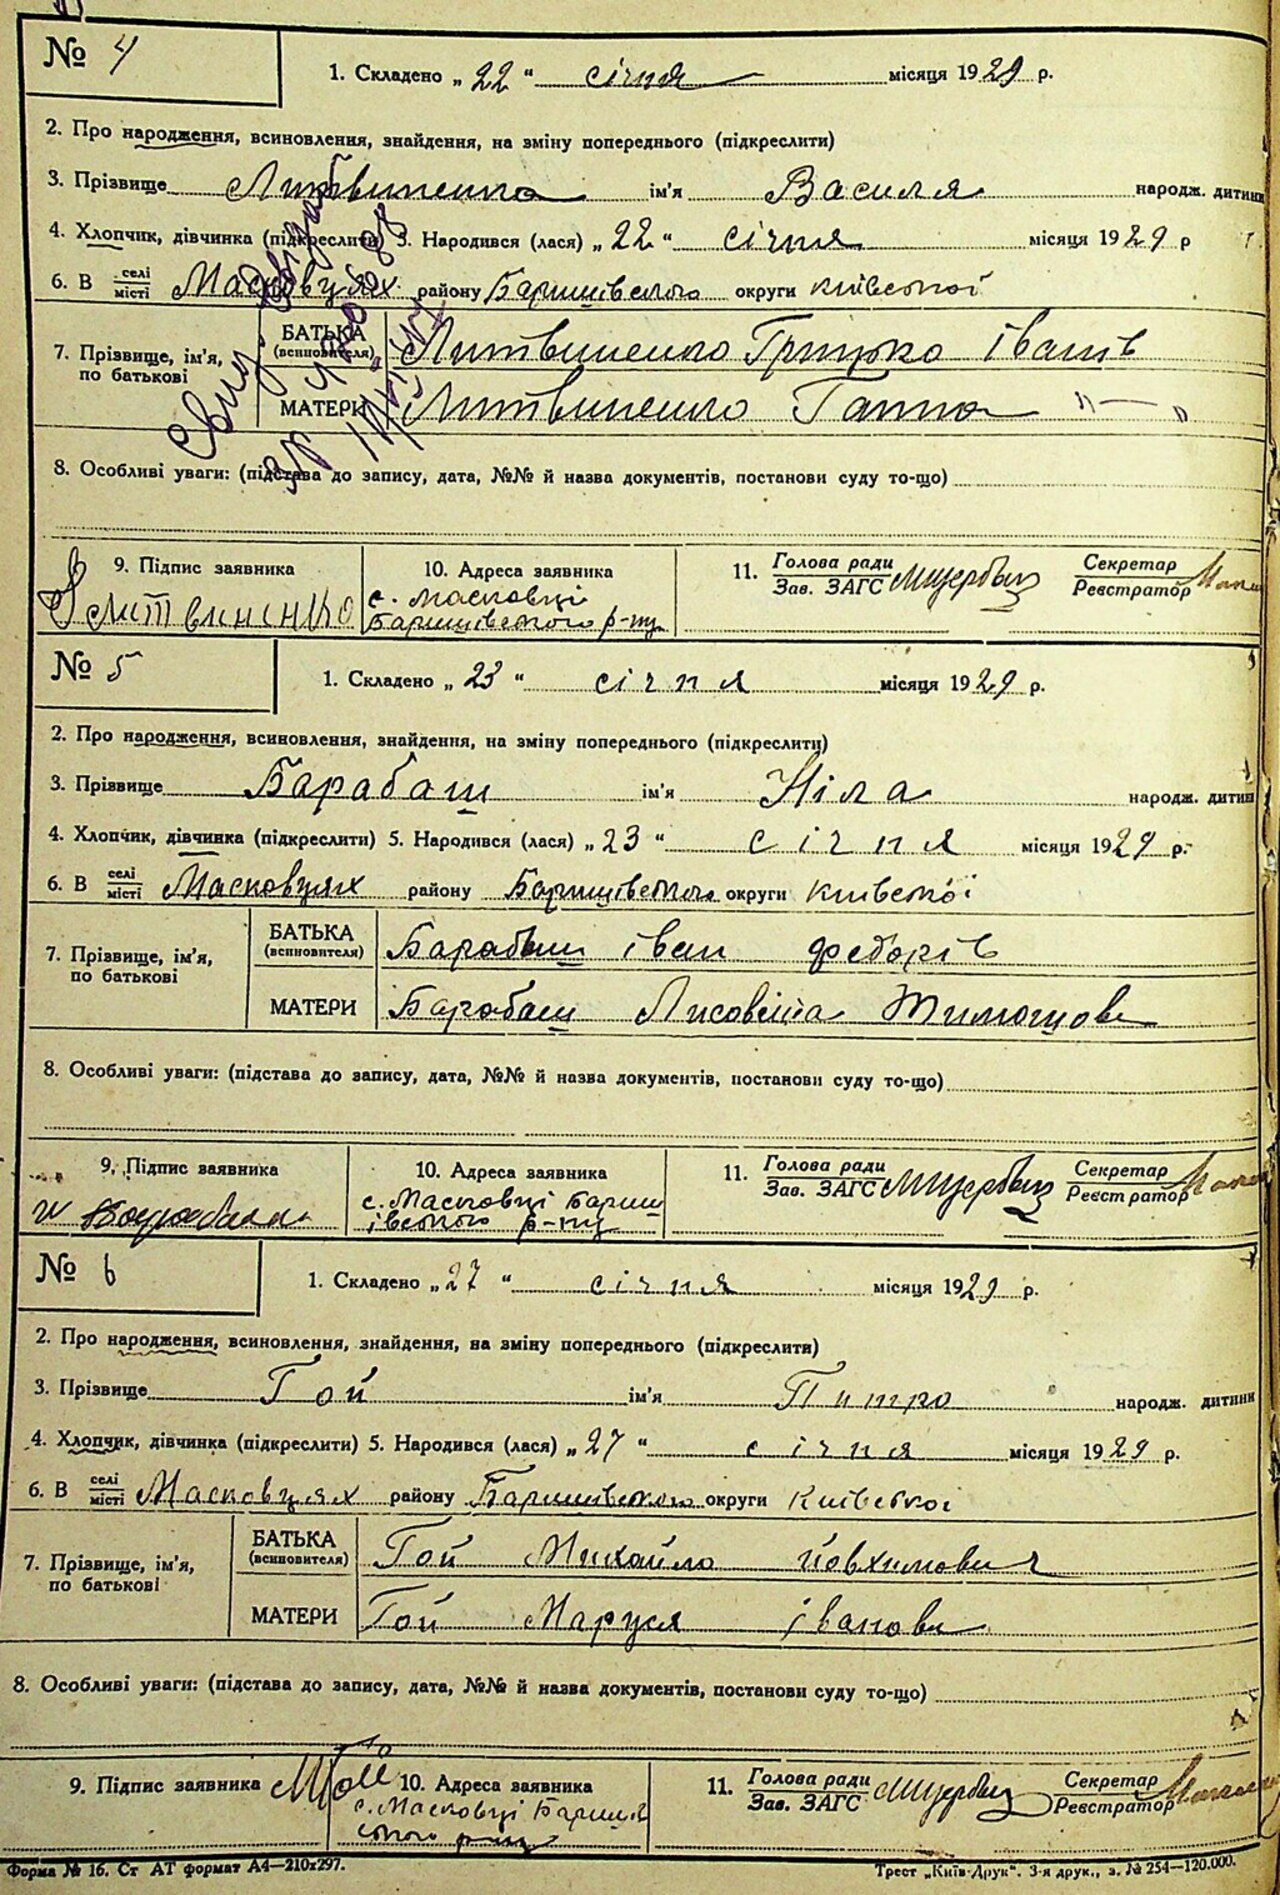 № 4
1. Складено „ 22 “ січня місяця 1929 р.
2. Про народження, всиновлення, знайдення, на зміну попереднього (підкреслити)
3. Прізвище Литвиненко ім'я Василя народж. дитини
4. Хлопчик, дівчинка (підкреслити) 5. Народився (лася) „ 22 “ січня місяця 1929 р
6. В селі місті Масковцях району Баришівського округи Київської
7. Прізвище, ім'я, по батькові
БАТЬКА (всиновителя) Литвиненко Грицько Іванів
МАТЕРИ Литвиненко Ганна "—"
8. Особливі уваги: (підстава до запису, дата, №№ й назва документів, постанови суду то-що)
9. Підпис заявника Литвиненко
10. Адреса заявника с. Масковці Баришівського р-ну
11. Голова ради Зав. ЗАГС Секретар Реєстратор
№ 5
1. Складено „ 23 “ січня місяця 1929 р.
2. Про народження, всиновлення, знайдення, на зміну попереднього (підкреслити)
3. Прізвище Барабаш ім'я Ніла народж. дитини
4. Хлопчик, дівчинка (підкреслити) 5. Народився (лася) „ 23 “ січня місяця 1929 р.
6. В селі місті Масковцях району Баришівського округи Київської
7. Прізвище, ім'я, по батькові
БАТЬКА (всиновителя) Барабаш Іван Федорів
МАТЕРИ Барабаш Тимошова
8. Особливі уваги: (підстава до запису, дата, №№ й назва документів, постанови суду то-що)
9. Підпис заявника и Барабаш
10. Адреса заявника с. Масковці Бариш
івського р-ну
11. Голова ради Зав. ЗАГС Секретар Реєстратор
№ 6
1. Складено „ 27 “ січня місяця 1929 р.
2. Про народження, всиновлення, знайдення, на зміну попереднього (підкреслити)
3. Прізвище Гой ім'я Питро народж. дитини
4. Хлопчик, дівчинка (підкреслити) 5. Народився (лася) „ 27 “ січня місяця 1929 р.
6. В селі місті Масковцях району Баришівського округи Київської
7. Прізвище, ім'я, по батькові
БАТЬКА (всиновителя) Гой Михайло Йовхимович
МАТЕРИ Гой Маруся Іванови
8. Особливі уваги: (підстава до запису, дата, №№ й назва документів, постанови суду то-що)
9. Підпис заявника М Гой
10. Адреса заявника с. Масковці Баришів
ського р-ну
11. Голова ради Зав. ЗАГС Секретар Реєстратор
Форма № 16. Ст АТ формат А4—210х297.
Трест „Київ-Друк“. 3-я друк., з. № 254—120.000.